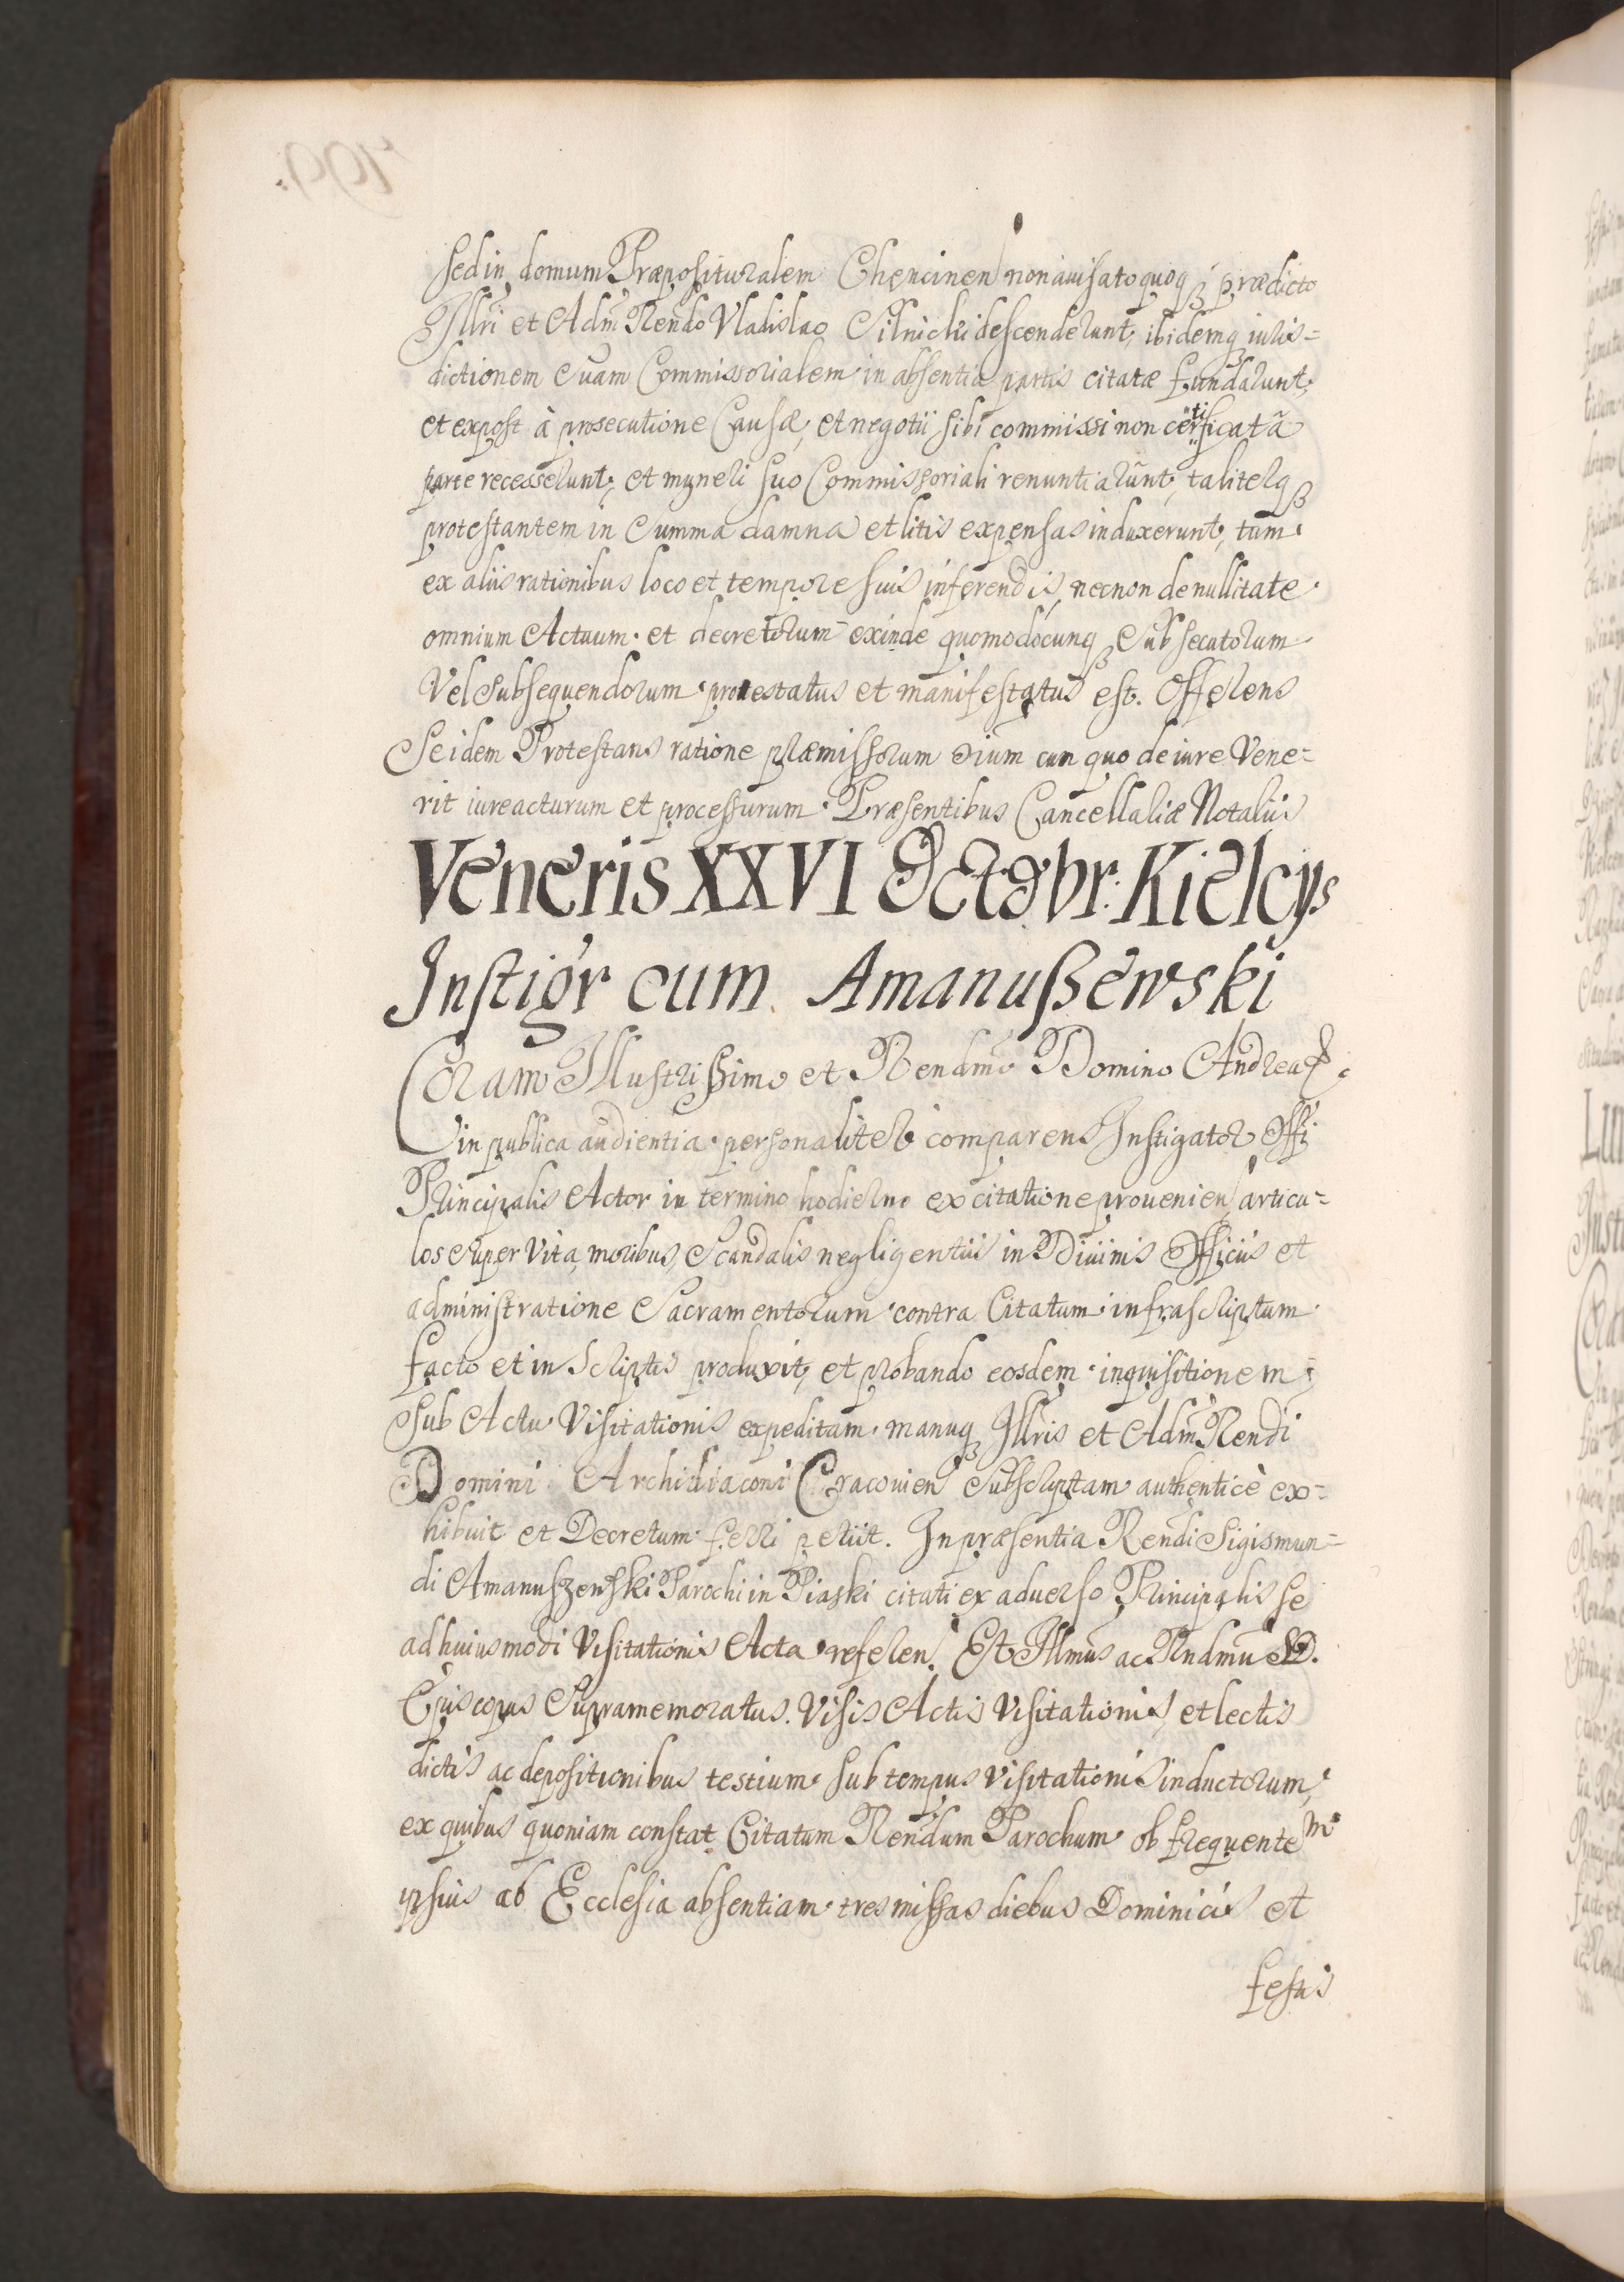 sed in domum Præposituralem Chencinen non auisato quoq prædicto
Illri et Adm Rendo Vladislao Silnicki descenderunt, ibidemq iuris=
dictionem suam Commissorialem in absentia partis citatæ fundarunt,
et expost à prosecutione Causæ, et negotii sibi commissi non certificatâ
parte recesserunt, et muneri suo Commissoriali renuntiarunt, taliterq
protestantem in summa damna et litis expensas induxerunt, tum
ex aliis rationibus loco et tempore suis inferendis, necnon de nullitate
omnium Actuum et decretorum exinde quomodocunq subsecutorum
Vel subsequendorum protestatus et manifestatus est. Offerens
Se idem Protestans ratione præmissorum dium cun quo de iure Vene=
rit iure acturum et processurum. Præsentibus Cancellariæ Notariis
Veneris XXVI Octobr: Kielcys
Instigr cum Amanuszewski
Coram Illustrissimo et Rendmo Domino Andrea
in publica audientia personaliter comparens Instigator Offi
Principalis Actor in termino hodierno ex citatione prouenien articu=
los super Vita, moribus, Scandalis negligentiis in Diuinis Officiis et
administratione Sacramentorum contra Citatum infrascriptum
facto et in Scriptis produxit, et probando eosdem inquisitionem
sub Actu Visitationis expeditam manuq Illris et Adm Rendi
Domini Archidiaconi Cracouien Subscriptam authenticè ex=
hibuit et Decretum ferri petiit. In præsentia Rendi Sigismun=
di Amanuszewski Parochi in Piaski citati ex aduerso Principalis se
ad huiusmodi Visitationis Acta referen. Et Illmus ac Rndmus D.
Episcopus Supramemoratus. Visis Actis Visitationis, et lectis
dictis ac depositionibus testium sub tempus Visitationis inductorum,
ex quibus quoniam constat Citatum Rendum Parochum ob frequentem
ipsius ab Ecclesia absentiam tres missas diebus Dominicis et
festis